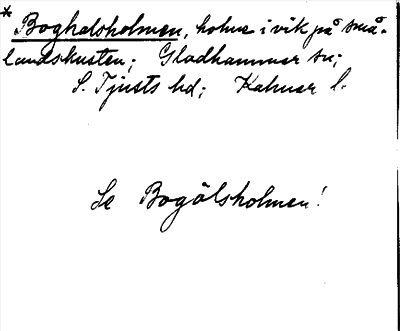 * Boghalsholmen, holme i vik på små-
landskusten; Gladhammar sn;
S. Tjusts hd; Kalmar l.
Se Bogölsholmen!